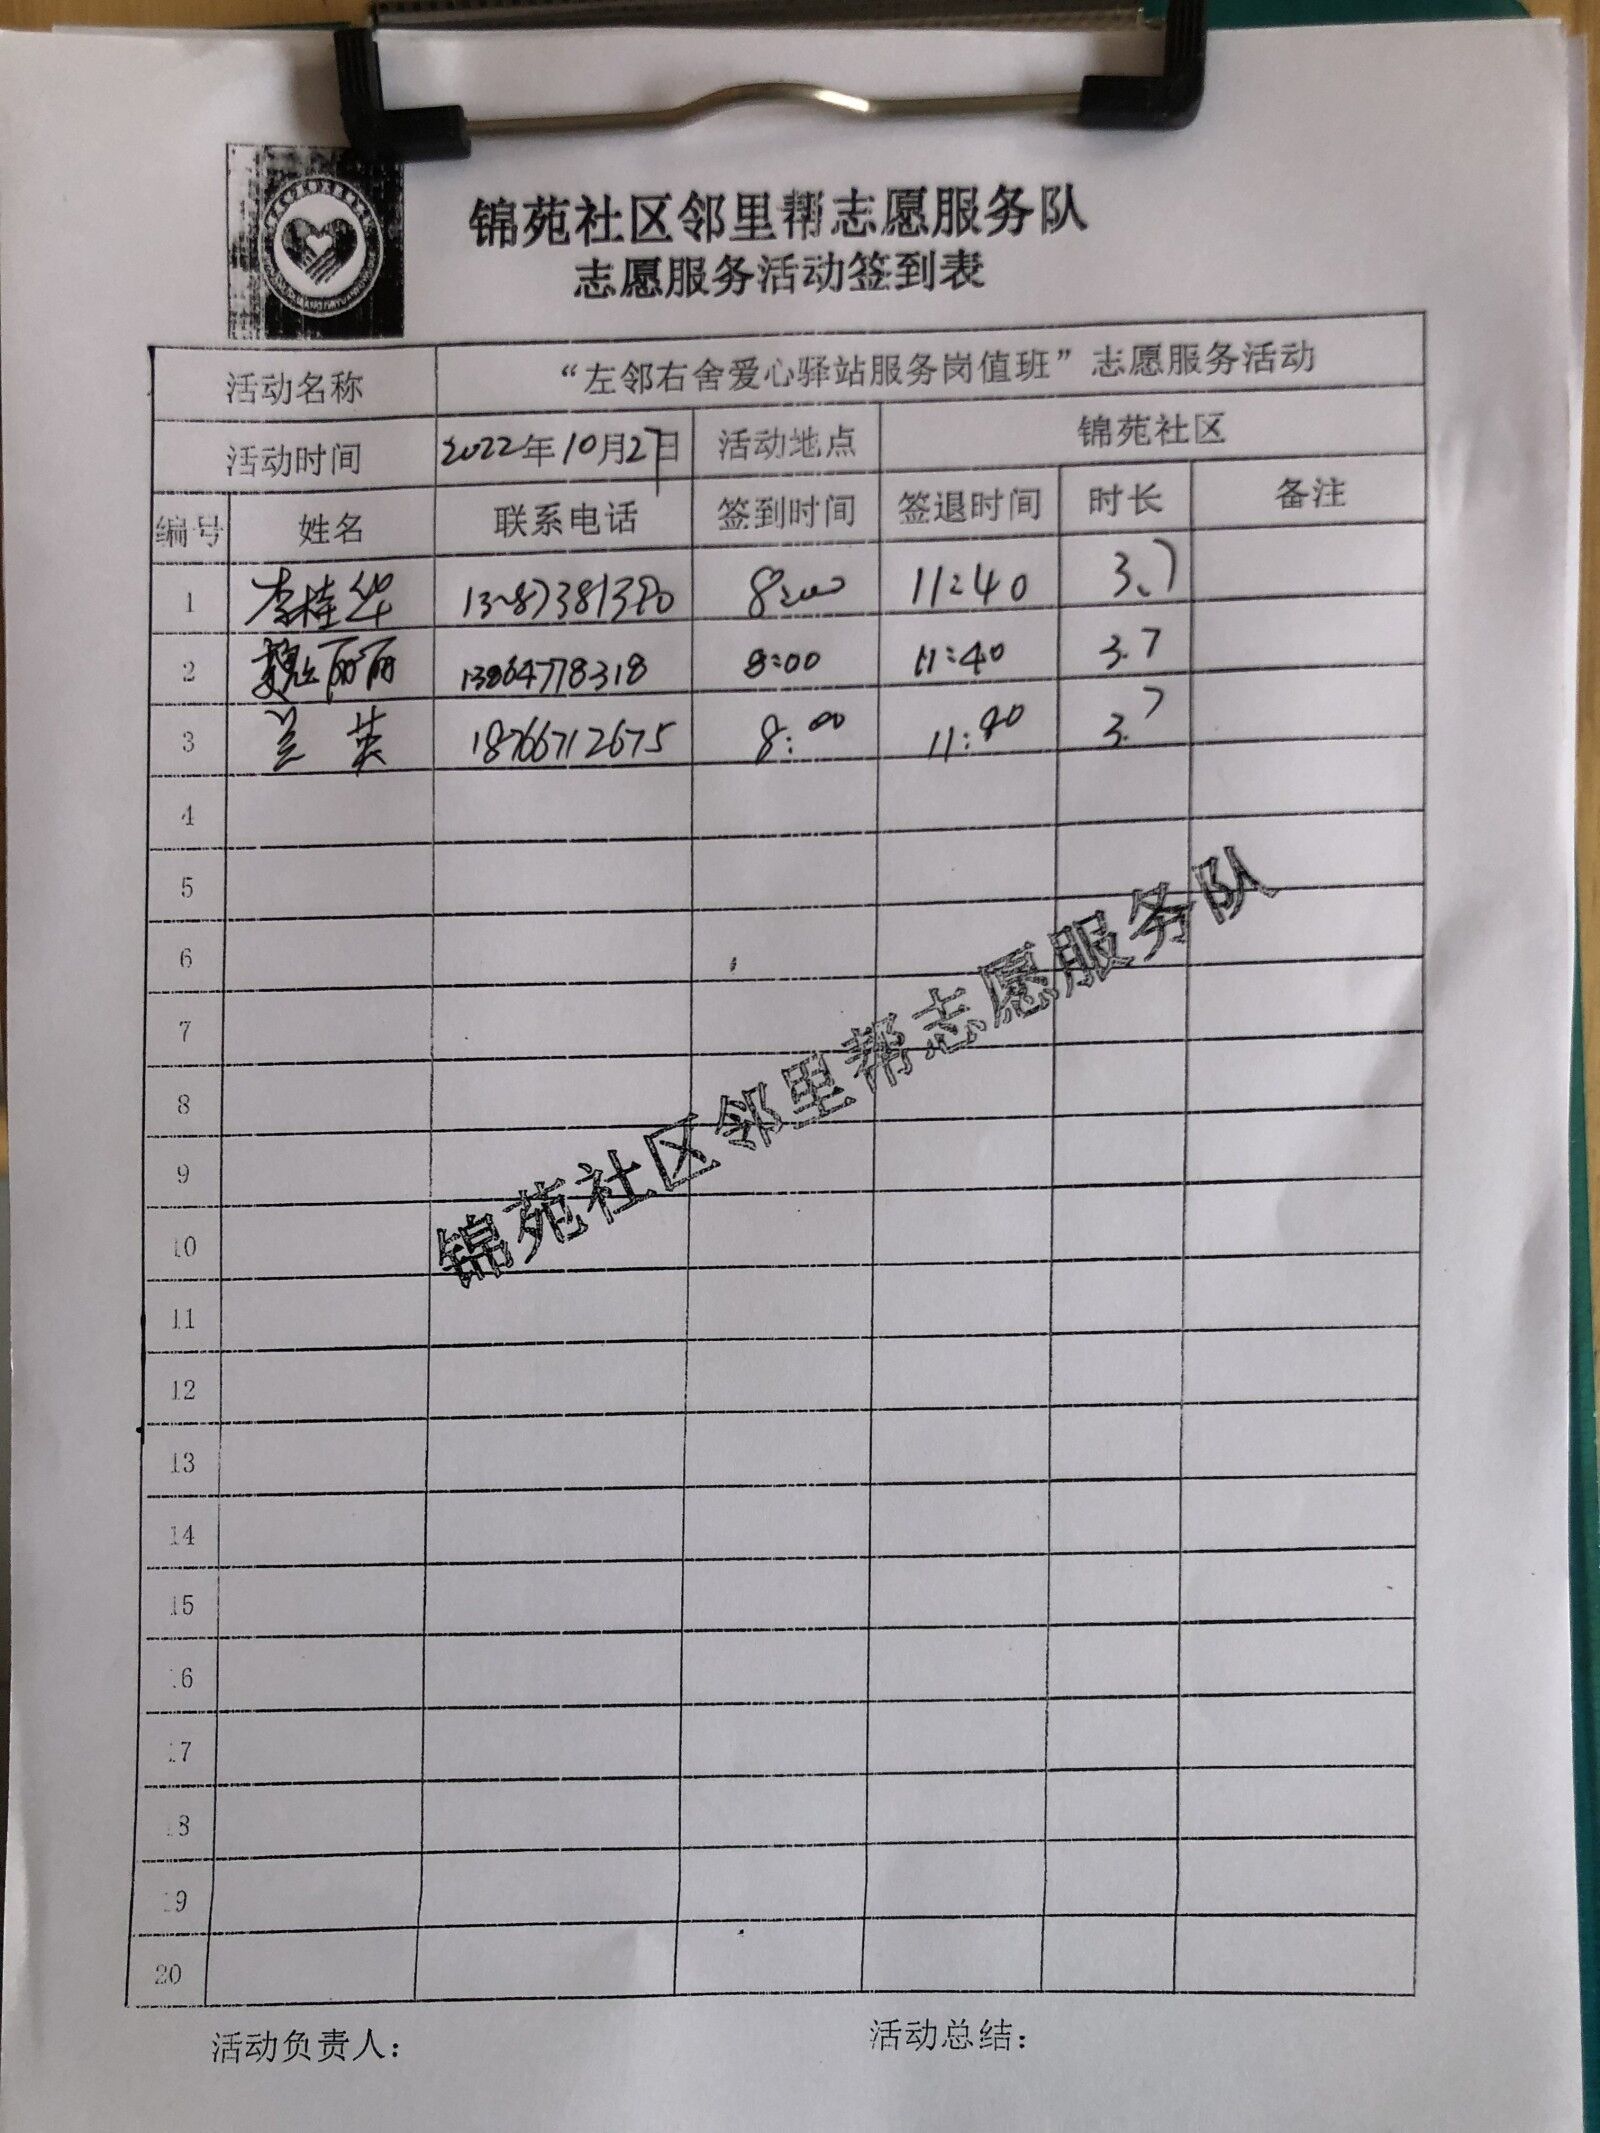 锦苑社区邻里帮志愿服务队
志愿服务活动签到表
活动名称 “左邻右舍爱心驿站服务岗值班”志愿服务活动
活动时间 2022年10月27日 活动地点 锦苑社区
编号 姓名 联系电话 签到时间 签退时间 时长 备注
1 李桂华 8:00 11:40 3.7
2 魏丽丽 13864778318 8:00 11:40 3.7
3 兰英 18766712675 8:00 11:40 3.7
4
5
6
7
8
9
10
11
12
13
14
15
16
17
18
19
20
锦苑社区邻里帮志愿服务队
活动负责人： 活动总结：